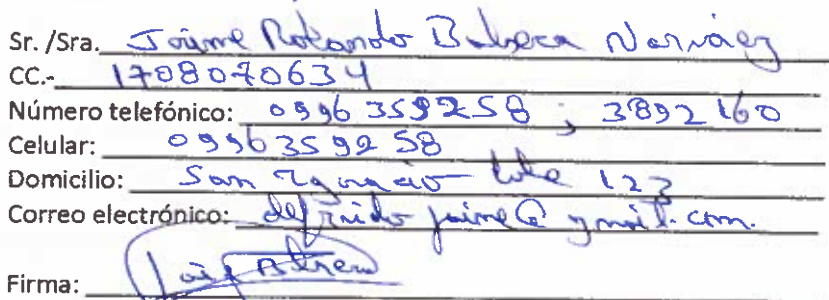 Sr. /Sra. Jaime Rolando Cabrera Narváez
CC.- 1708070634
Número telefónico: 0996359258 ; 3892160
Celular: 0996359258
Domicilio: San Ignacio lote 123
Correo electrónico: jaime@gmail.com.
Firma: